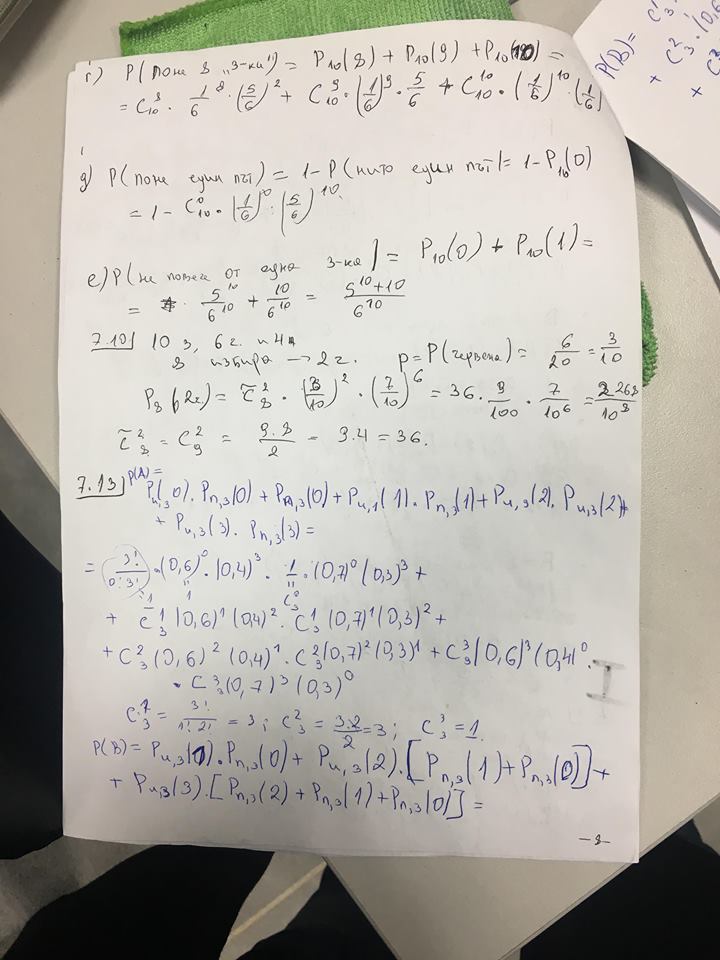 г) P(поне 8 „3-ки") = P₁₀(8) + P₁₀(9) + P₁₀(10) =
= C₁₀⁸ · 1/6⁸ · (5/6)² + C₁₀⁹ · (1/6)⁹ · 5/6 + C₁₀¹⁰ · (1/6)¹⁰ · (1/6)
д) P(поне един път) = 1 - P(нито един път) = 1 - P₁₀(0)
= 1 - C₁₀⁰ · (1/6)⁰ · (5/6)¹⁰.
е) P(не повече от една 3-ка) = P₁₀(0) + P₁₀(1) =
= 5¹⁰/6¹⁰ + 10/6¹⁰ = (5¹⁰+10)/6¹⁰
7.10) 10 з, 6 г. и 4
8 избира → 2 г. p = P(червена) = 6/20 = 3/10
P₈(2г.) = C̃₈² · (3/10)² · (7/10)⁶ = 36 · 9/100 · 7/10⁶ = 2268/10⁸
C̃₈² = C₉² = 9.8/2 = 9.4 = 36.
7.13) P(A) =
Pᵤ,₃(0) · Pₙ,₃(0) + Pₙ,₃(0) + Pᵤ,₁(1) · Pₙ,₃(1) + Pᵤ,₃(2) · Pᵤ,₃(2) +
+ Pᵤ,₃(3) · Pₙ,₃(3) =
= 3!/0!3! · (0,6)⁰ · (0,4)³ · 1 · (0,7)⁰ (0,3)³ +
" 1 " C₃⁰
+ C₃¹ (0,6)¹ (0,4)² · C₃¹ (0,7)¹ (0,3)² +
+ C₃² (0,6)² (0,4)¹ · C₃² (0,7)² (0,3)¹ + C₃³ (0,6)³ (0,4)⁰ ·
· C₃³ (0,7)³ (0,3)⁰
C₃¹ = 3!/1!2! = 3; C₃² = 3.2/2 = 3; C₃³ = 1.
P(B) = Pᵤ,₃(0) · Pₙ,₃(0) + Pᵤ,₃(2) · [Pₙ,₃(1) + Pₙ,₃(0)] +
+ Pᵤ,₃(3) · [Pₙ,₃(2) + Pₙ,₃(1) + Pₙ,₃(0)] =
-8-
P(B) =
C₃¹ ·
+ C₃² · (0,6
+ C₃